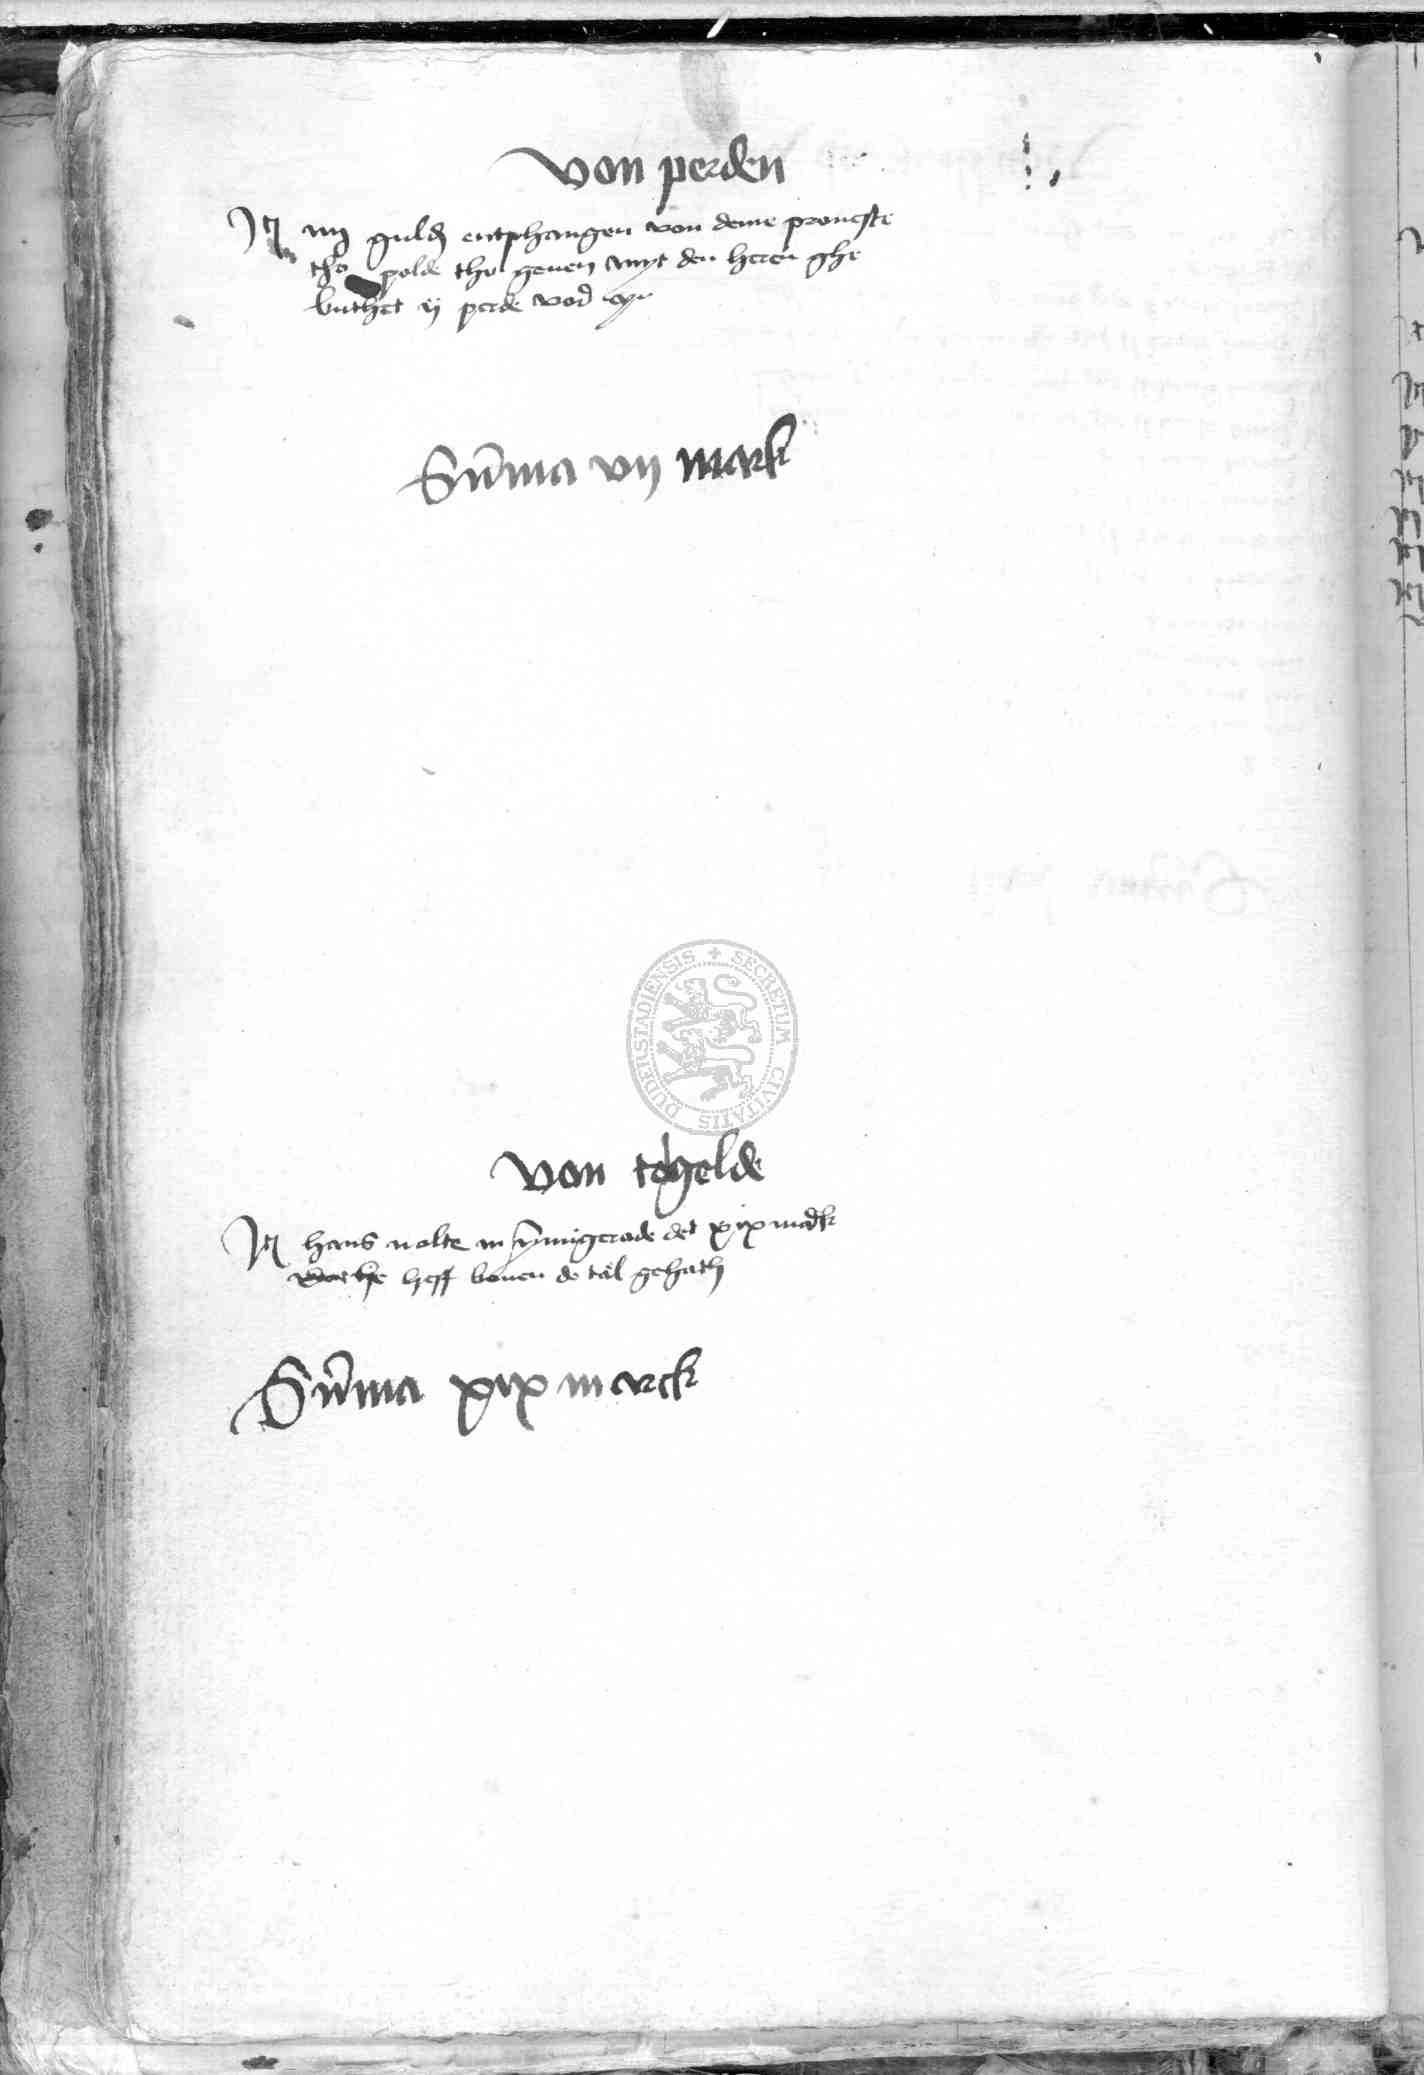 von perden
It iiij guld entphangen von deme proueste
tho polde tho geuen myt den heren ghe
buthet ij perde vod
Sūma vij mark
SECRETUM CIVITATIS DUDERSTADIENSIS
von tögelde
It hans nolte in ymigerade det xix mark
heff bouen de tal gehath
Sūma xix marck